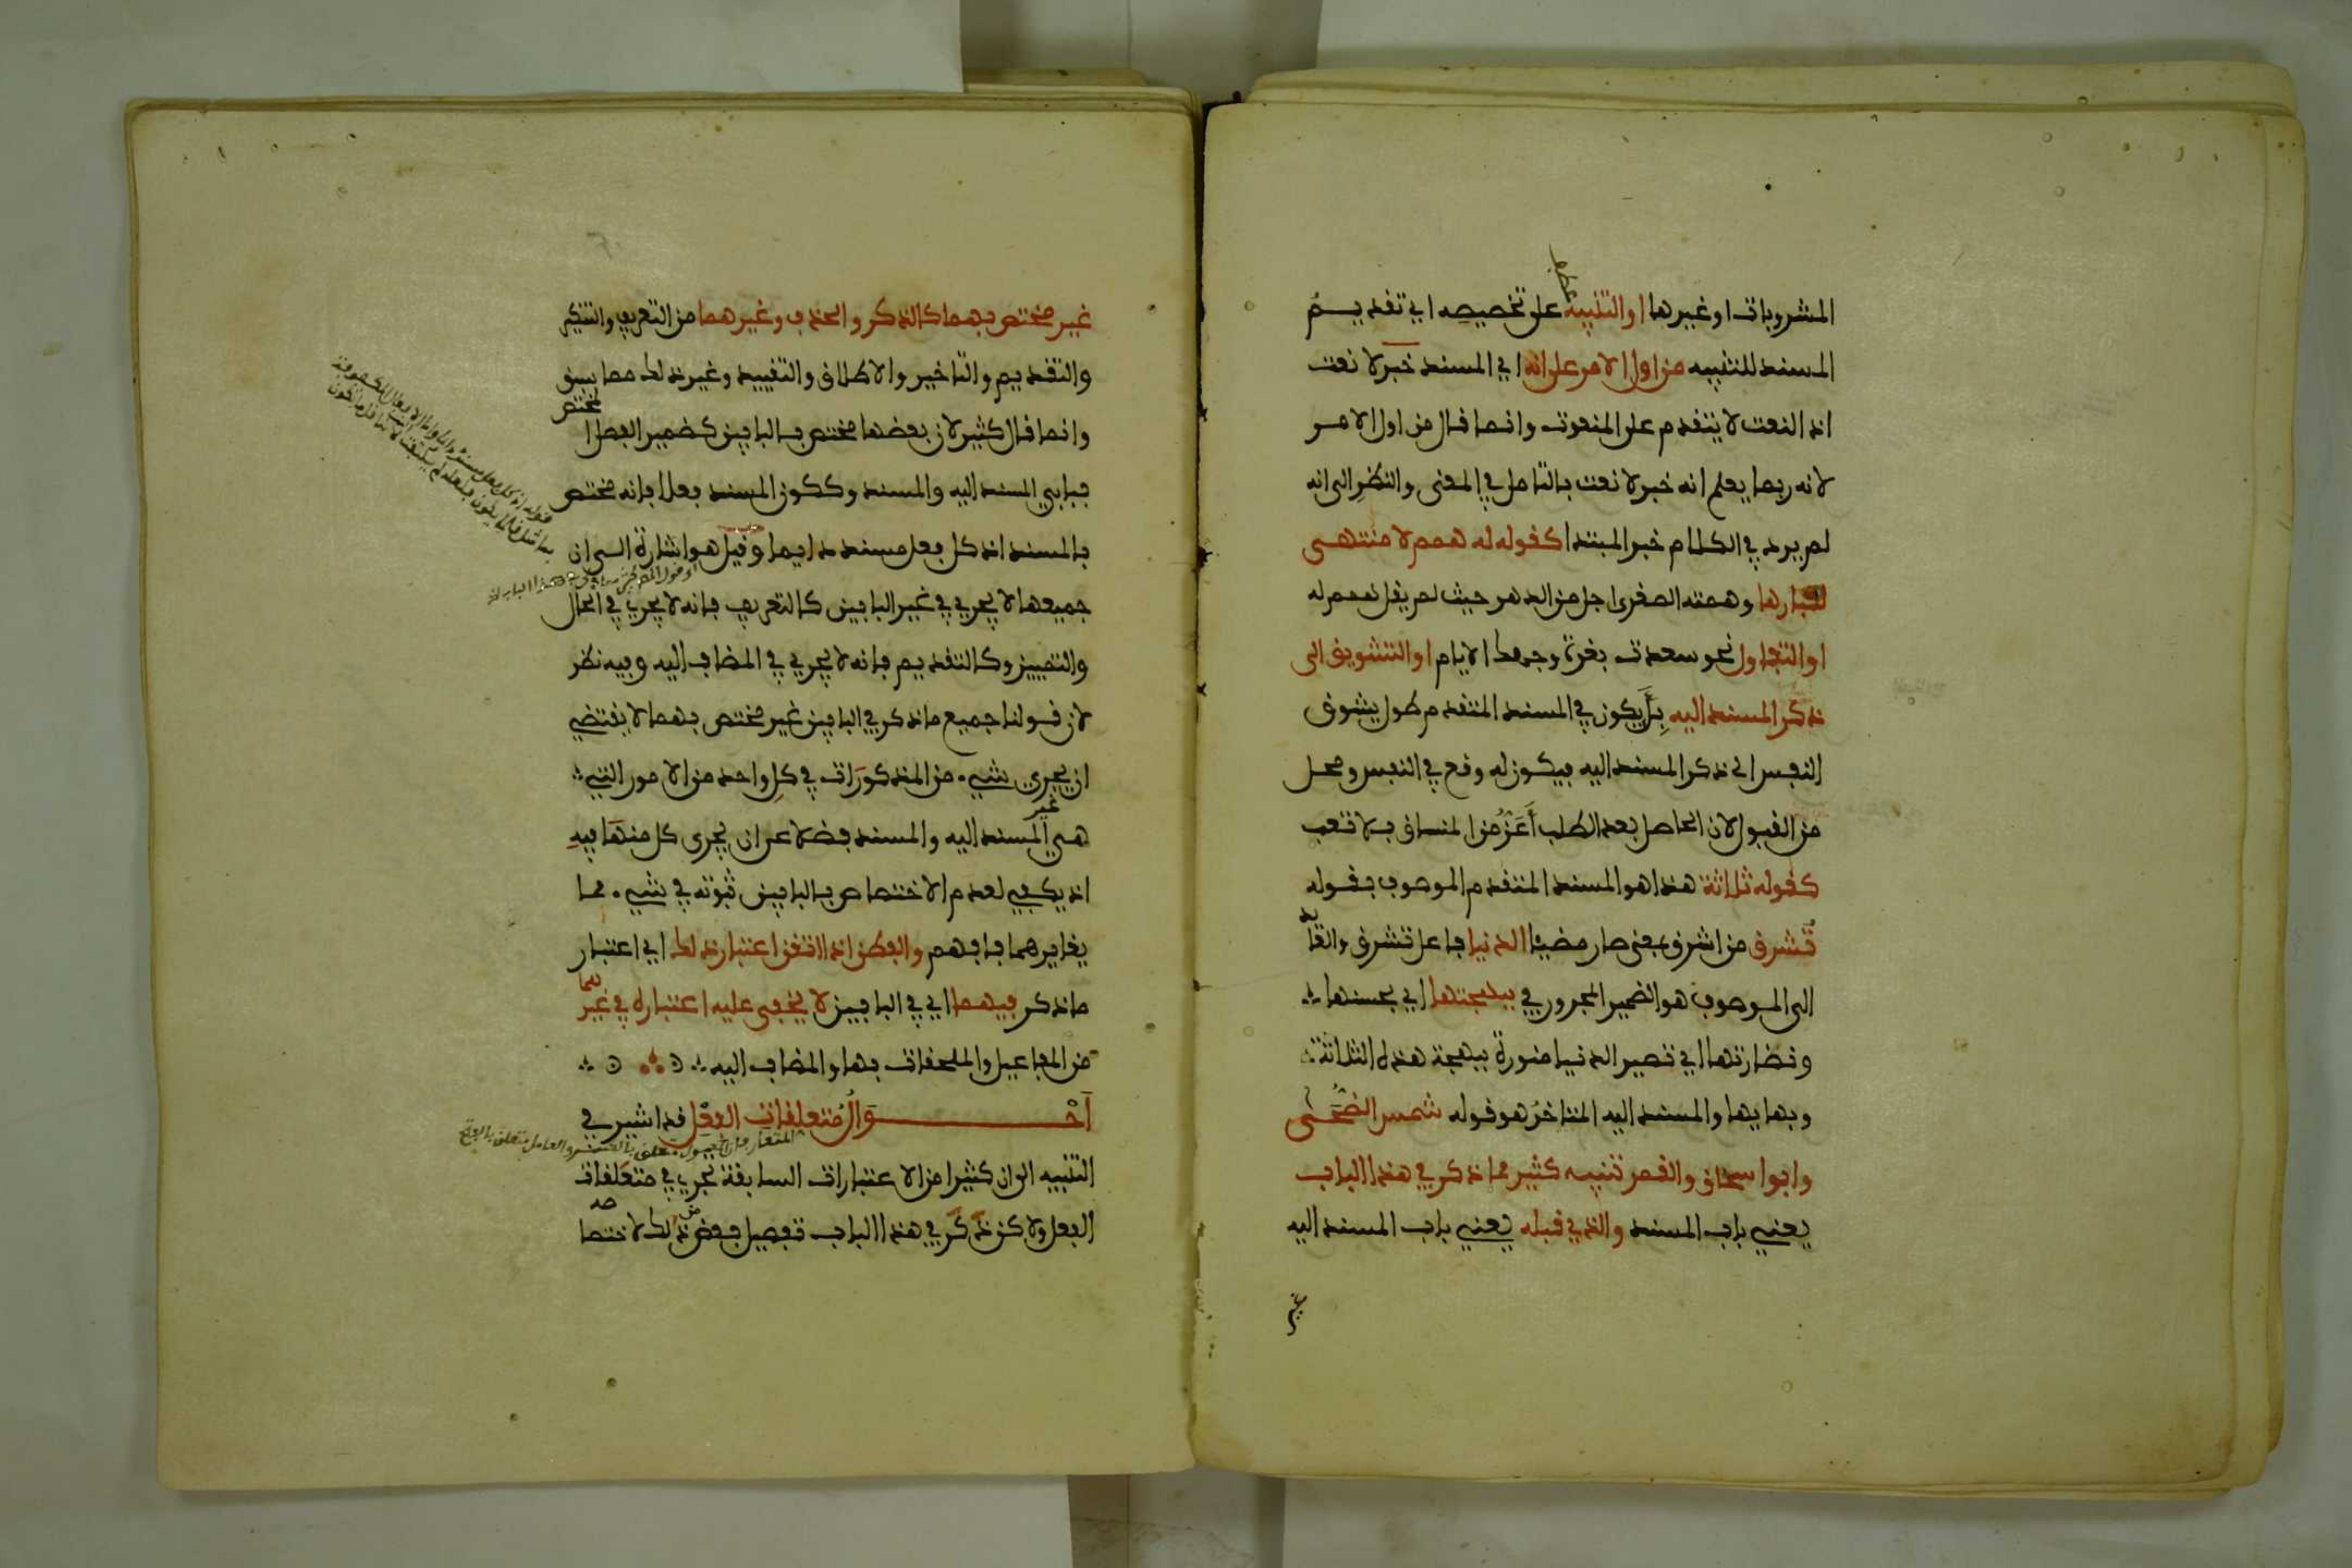 المشروبات او غيرها او التنبيه على تخصيصه اي تقديم
المسند للتنبيه من اول الامر على انه اي المسند خبر لا نعت
اذ النعت لا يتقدم على المنعوت وانما قال من اول الامر
لانه ربما يعلم انه خبر لا نعت بالتامل في المعنى والنظر الى انه
لم يرد في الكلام خبر المبتدا كقوله له همم لا منتهى
لكبارها وهمته الصغرى اجل من الدهر حيث لم يقل همم له
او التفاول نحو سعدت بغرة وجهك الايام او التشويق الى
ذكر المسند اليه بان يكون في المسند المتقدم طول يشوق
النفس الى ذكر المسند اليه فيكون له وقع في النفس ومحل
من القبول لان الحاصل بعد الطلب اَعَزُّ من المنساق بلا تعب
كقوله ثلاثة هذا هو المسند المتقدم الموصوف بقوله
تُشرق من اشرق بمعنى صار مضيئا الدنيا فاعل تشرق والعائد
الى الموصوف هو الضمير المجرور في ببهجتها اي بحسنها
ونضارتها اي تصير الدنيا منورة ببهجة هذه الثلاثة
وبهايها والمسند اليه المتاخر هو قوله شمس الضُّحَى
وابوا سحاق والقمر تنبيه كثير مما ذكر في هذا الباب
يعني باب المسند والذي قبله يعني باب المسند اليه
غير
غير مختص بهما كالذكر والحذف وغيرهما من التعريف والتنكير
والتقديم والتاخير والاطلاق والتقييد وغير ذلك مما سبق
وانما قال كثير لان بعضها مختص بالبابين كضمير الفصل المختص
بما بين المسند اليه والمسند وككون المسند فعلا فانه مختص
بالمسند اذ كل فعل مسند دايما وقيل هو اشارة الى ان
جميعها لا يجري في غير البابين كالتعريف فانه لا يجري في الحال
والتمييز وكالتقديم فانه لا يجري في المضاف اليه وفيه نظر
لان قولنا جميع ما ذكر في البابين غير مختص بهما لا يقتضي
ان يجري شيء من المذكورات في كل واحد من الامور التي
هي غير المسند اليه والمسند فضلا عن ان يجري كل منها فيه
اذ يكفي لعدم الاختصاص بالبابين ثبوته في شيء مما
يغايرهما فافهم والفطن اذا اتقن اعتبار ذلك اي اعتبار
ما ذكر فيهما اي في البابين لا يخفى عليه اعتباره في غيرهما
من المفاعيل والملحقات بها والمضاف اليه
اَحْوَالُ مُتعلقات الفعل قد اشير في
التنبيه الى ان كثيرا من الاعتبارات السابقة تجري في متعلقات
الفعل ولاكن ذكر في هذا الباب تفصيل بعض من ذلك لاختصاصه